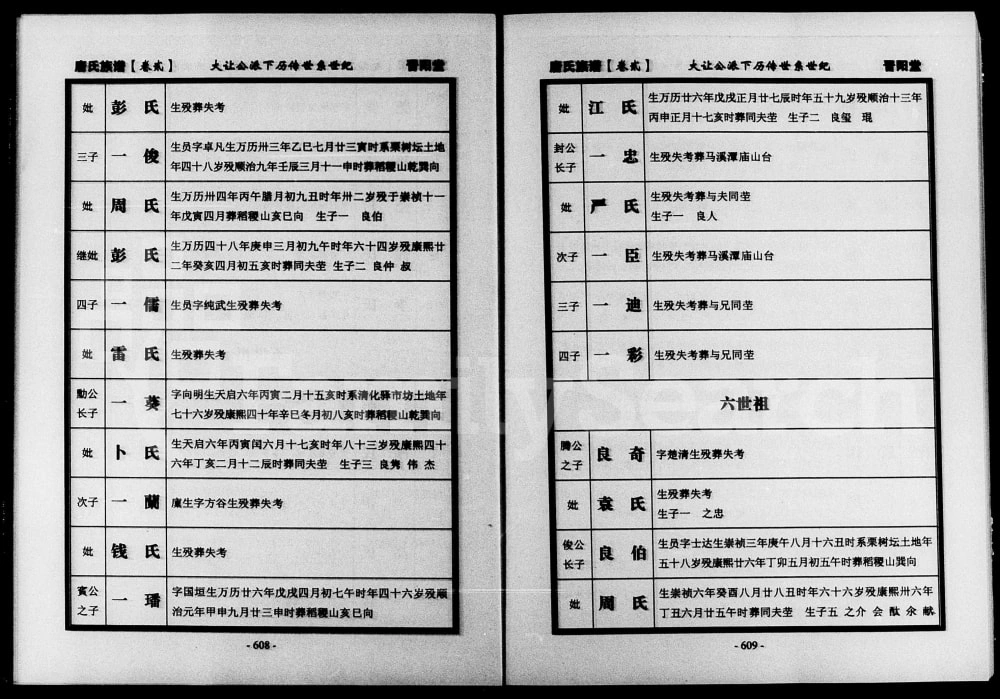 唐氏族谱【卷贰】 大让公派下历传世系世纪 晋阳堂
妣 彭氏 生殁葬失考
三子 一俊 生员字卓凡生万历卅三年乙巳七月廿三寅时系栗树坛土地
年四十八岁殁顺治九年壬辰三月十一申时葬稻稷山乾巽向
妣 周氏 生万历卅四年丙午腊月初九丑时年卅二岁殁于崇祯十一
年戊寅四月葬稻稷山亥巳向 生子一 良伯
继妣 彭氏 生万历四十八年庚申三月初九午时年六十四岁殁康熙廿
二年癸亥四月初五亥时葬同夫茔 生子二 良仲 叔
四子 一儒 生员字纯武生殁葬失考
妣 雷氏 生殁葬失考
勳公
长子 一葵 字向明生天启六年丙寅二月十五亥时系清化驿市坊土地年
七十六岁殁康熙四十年辛巳冬月初八亥时葬稻稷山乾巽向
妣 卜氏 生天启六年丙寅闰六月十七亥时年八十三岁殁康熙四十
六年丁亥二月十二辰时葬同夫茔 生子三 良隽 伟 杰
次子 一蘭 廩生字方谷生殁葬失考
妣 钱氏 生殁葬失考
賓公
之子 一璠 字国垣生万历廿六年戊戌四月初七午时年四十六岁殁顺
治元年甲申九月廿三申时葬稻稷山亥巳向
- 608 -
唐氏族谱【卷贰】 大让公派下历传世系世纪 晋阳堂
妣 江氏 生万历廿六年戊戌正月廿七辰时年五十九岁殁顺治十三年
丙申正月十七亥时葬同夫茔 生子二 良玺 琨
封公
长子 一忠 生殁失考葬马溪潭庙山台
妣 严氏 生殁失考葬与夫同茔
生子一 良人
次子 一臣 生殁失考葬马溪潭庙山台
三子 一迪 生殁失考葬与兄同茔
四子 一彩 生殁失考葬与兄同茔
六世祖
腾公
之子 良奇 字楚清生殁葬失考
妣 袁氏 生殁葬失考
生子一 之忠
俊公
长子 良伯 生员字士达生崇祯三年庚午八月十六丑时系栗树坛土地年
五十八岁殁康熙廿六年丁卯五月初五午时葬稻稷山巽向
妣 周氏 生崇祯六年癸酉八月廿八丑时年六十六岁殁康熙卅六年
丁丑六月廿五午时葬同夫茔 生子五 之介 会 猷 余 献
- 609 -